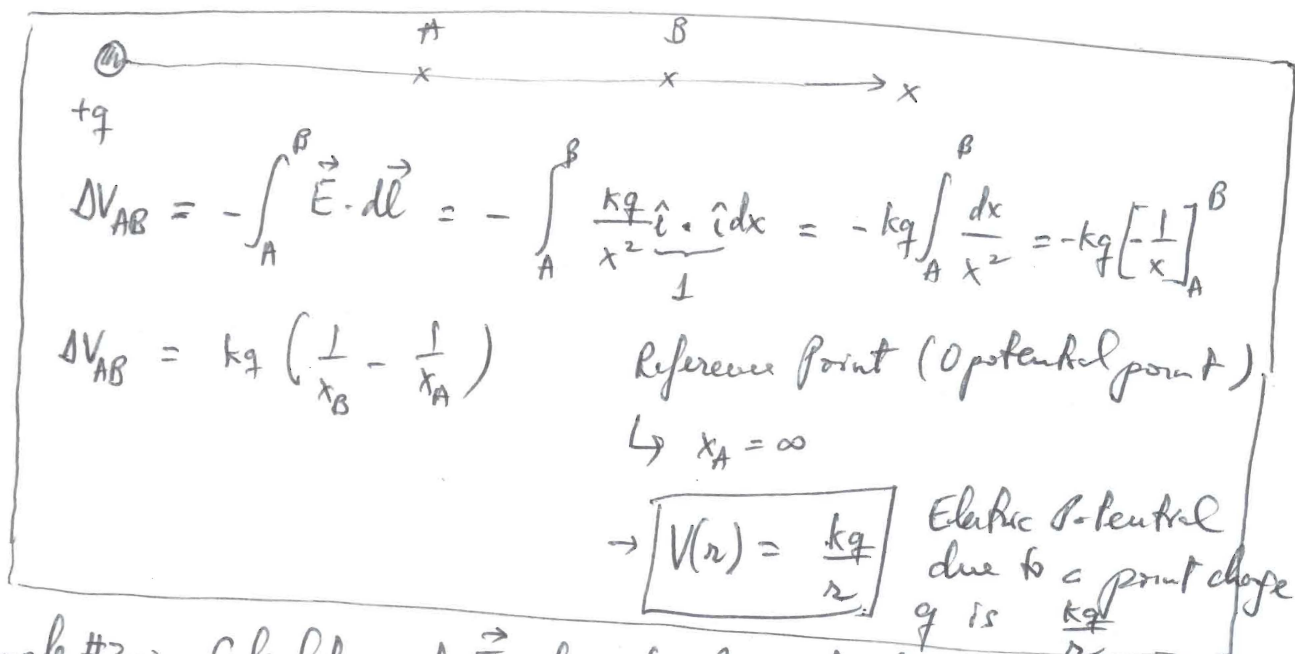 A B
x x → x
+q
ΔV_AB = -∫_A^B E⃗ · dl⃗ = -∫_A^B kq/x² î · î dx = -kq ∫_A^B dx/x² = -kq [-1/x]_A^B
1
ΔV_AB = kq (1/x_B - 1/x_A) Reference Point (0 potential point)
↳ x_A = ∞
→ V(r) = kq/r Electric Potential
due to a point charge
q is kq/r
#2